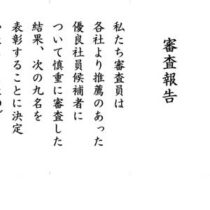 審査報告
私たち審査員は
各社より推薦のあった
優良社員候補者に
ついて慎重に審査した
結果、次の九名を
表彰することに決定